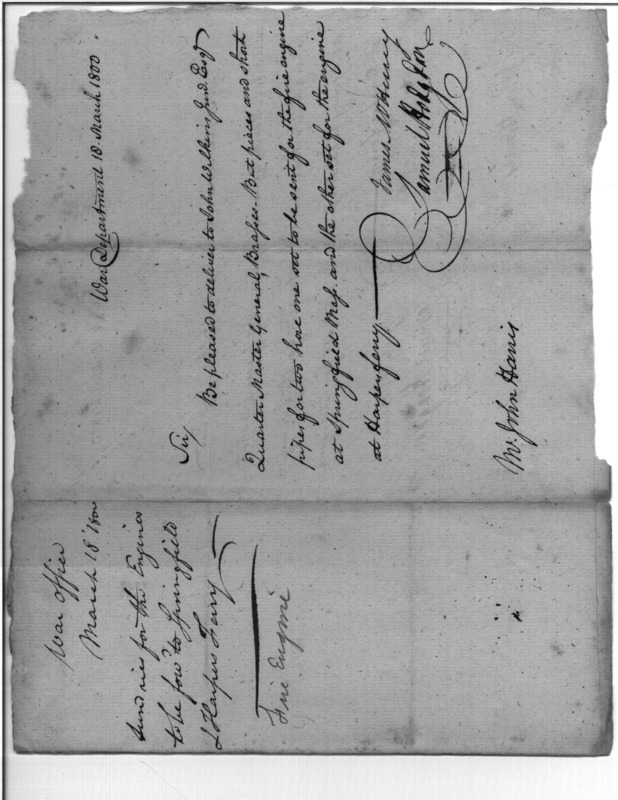 War Department 18 March 1800
Sir,
Be pleased to deliver to John Wilkins Jund. Esqr
Quarter Master General, Brasses. But pieces and short
pipes for two hose one set to be sent for the fire engine
at Springfield Mass. and the other set for the engine
at Harpers ferry.
James McHenry
Samuel Hodgdon
Mr. John Harris
War Office
March 18 1800
Sundries for the Engines
to be fowd to Springfield
& Harpers Ferry
Fire Engine